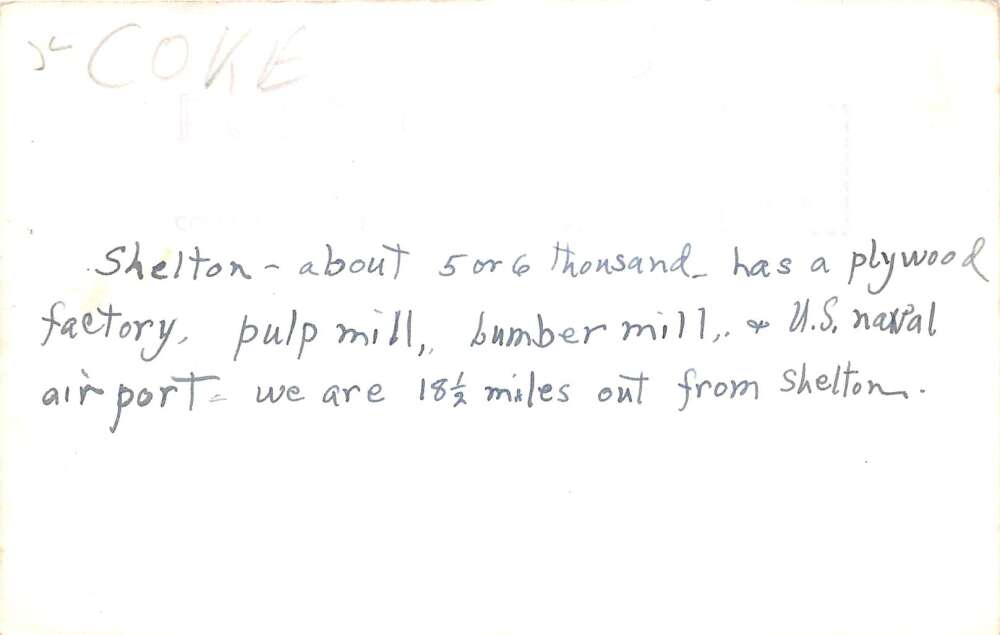 COKE
Shelton - about 5 or 6 thousand - has a plywood
factory, pulp mill, lumber mill, & U.S. naval
air port - we are 18½ miles out from Shelton.